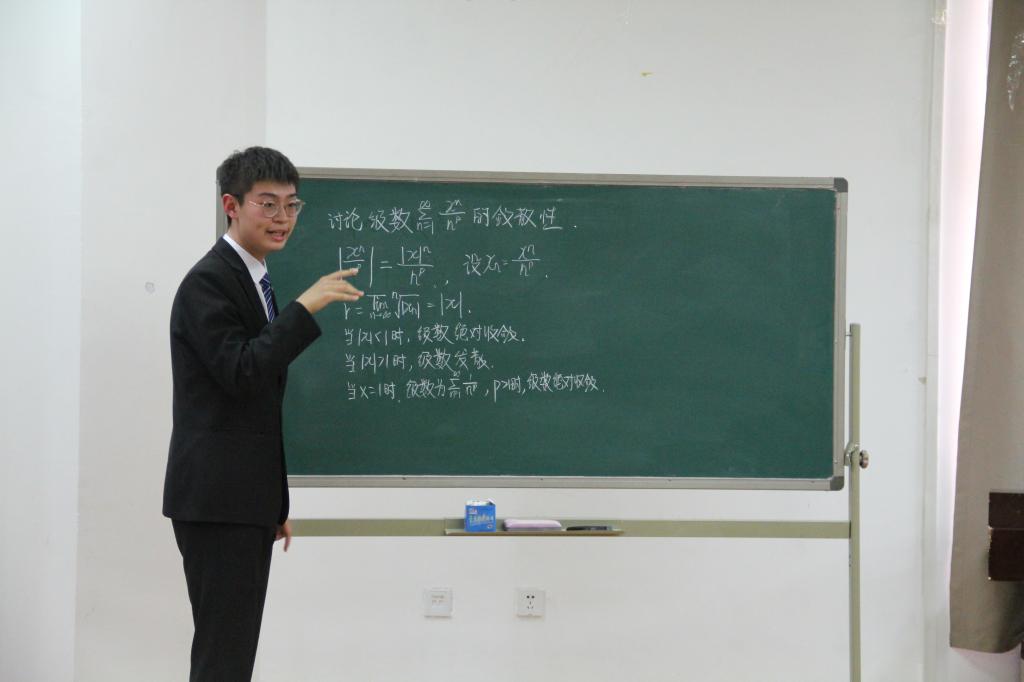 讨论级数 $\sum_{n=1}^{\infty} \frac{x^n}{n^p}$ 的敛散性.
$\left|\frac{x^n}{n^p}\right| = \frac{|x|^n}{n^p}$, 设 $x_n = \frac{x^n}{n^p}$.
$r = \overline{\lim}_{n\to\infty} \sqrt[n]{|x_n|} = |x|$.
当 |x|<1 时, 级数绝对收敛.
当 |x|>1 时, 级数发散.
当 x=1 时, 级数为 $\sum_{n=1}^{\infty} \frac{1}{n^p}$, p>1时, 级数绝对收敛.